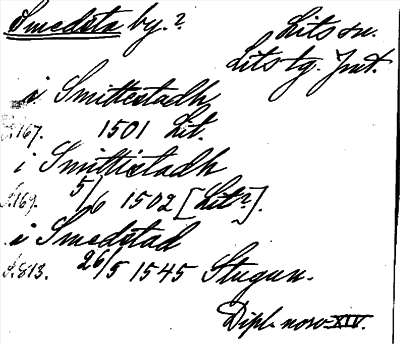 Smedsta by.?
Lits sn.
Lits tg. Jmt.
i Smittestadh
167. 1501 Lit.
i Smittistadh
169. 5/6 1502 [Lit?].
i Smedstad
s. 813. 26/5 1545 Stugun.
Dipl. norv. XIV.